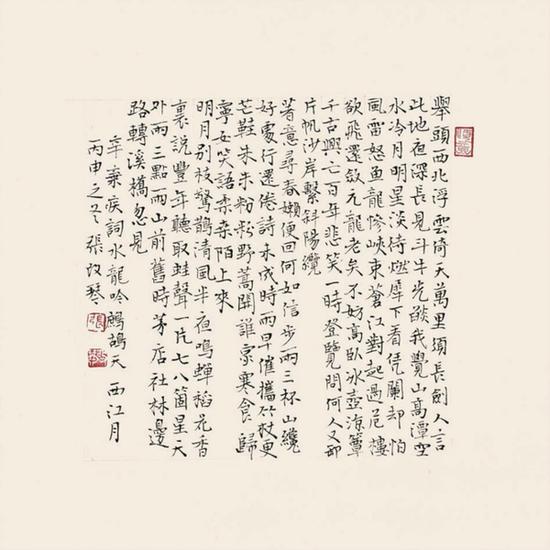 舉頭西北浮雲倚天萬里須長劍人言
此地夜深長見斗牛光燄我覺山高潭空
水冷月明星淡待燃犀下看凭闌却怕
風雷怒魚龍慘峽束蒼江對起過危樓
欲飛還斂元龍老矣不妨高臥冰壺涼簟
千古興亡百年悲笑一時登覽問何人又卸
片帆沙岸繫斜陽纜
著意尋春嬾便回何如信步兩三杯山纔
好處行還倦詩未成時雨早催攜竹杖更
芒鞋朱朱粉粉野蒿開誰家寒食歸
寧女笑語柔柔陌上來
明月別枝驚鵲清風半夜鳴蟬稻花香
裏說豐年聽取蛙聲一片七八箇星天
外兩三點雨山前舊時茅店社林邊
路轉溪橋忽見
辛棄疾詞水龍吟鷓鴣天 西江月
丙申之 張改琴